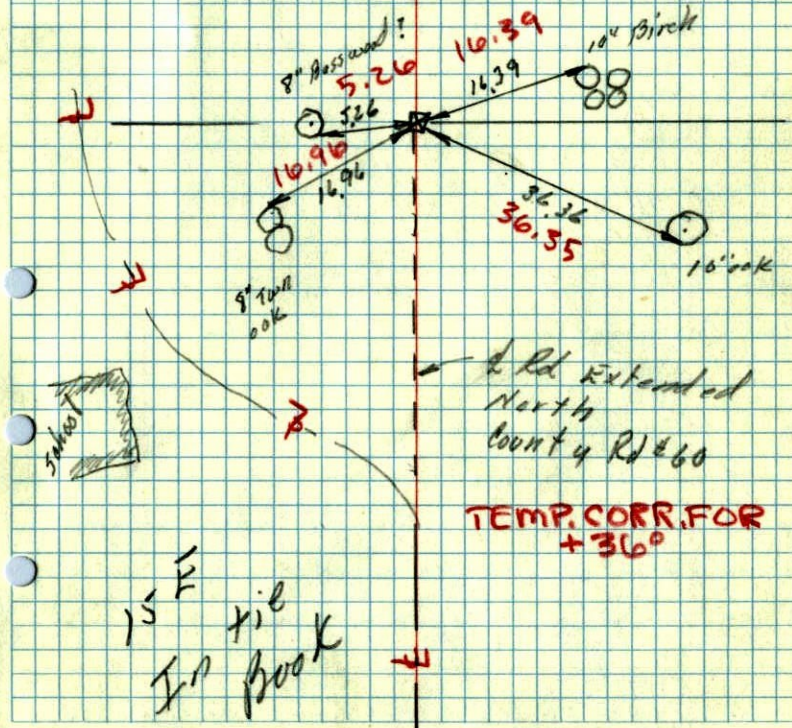 8" Basswood?
5.26
5.26
16.39
16.39
10" Birch
16.96
16.96
36.36
36.35
8" Twn
oak
10" oak
School
℄ Rd Extended
North
County Rd #60
TEMP. CORR. FOR
+36°
15 E
In tie
Book